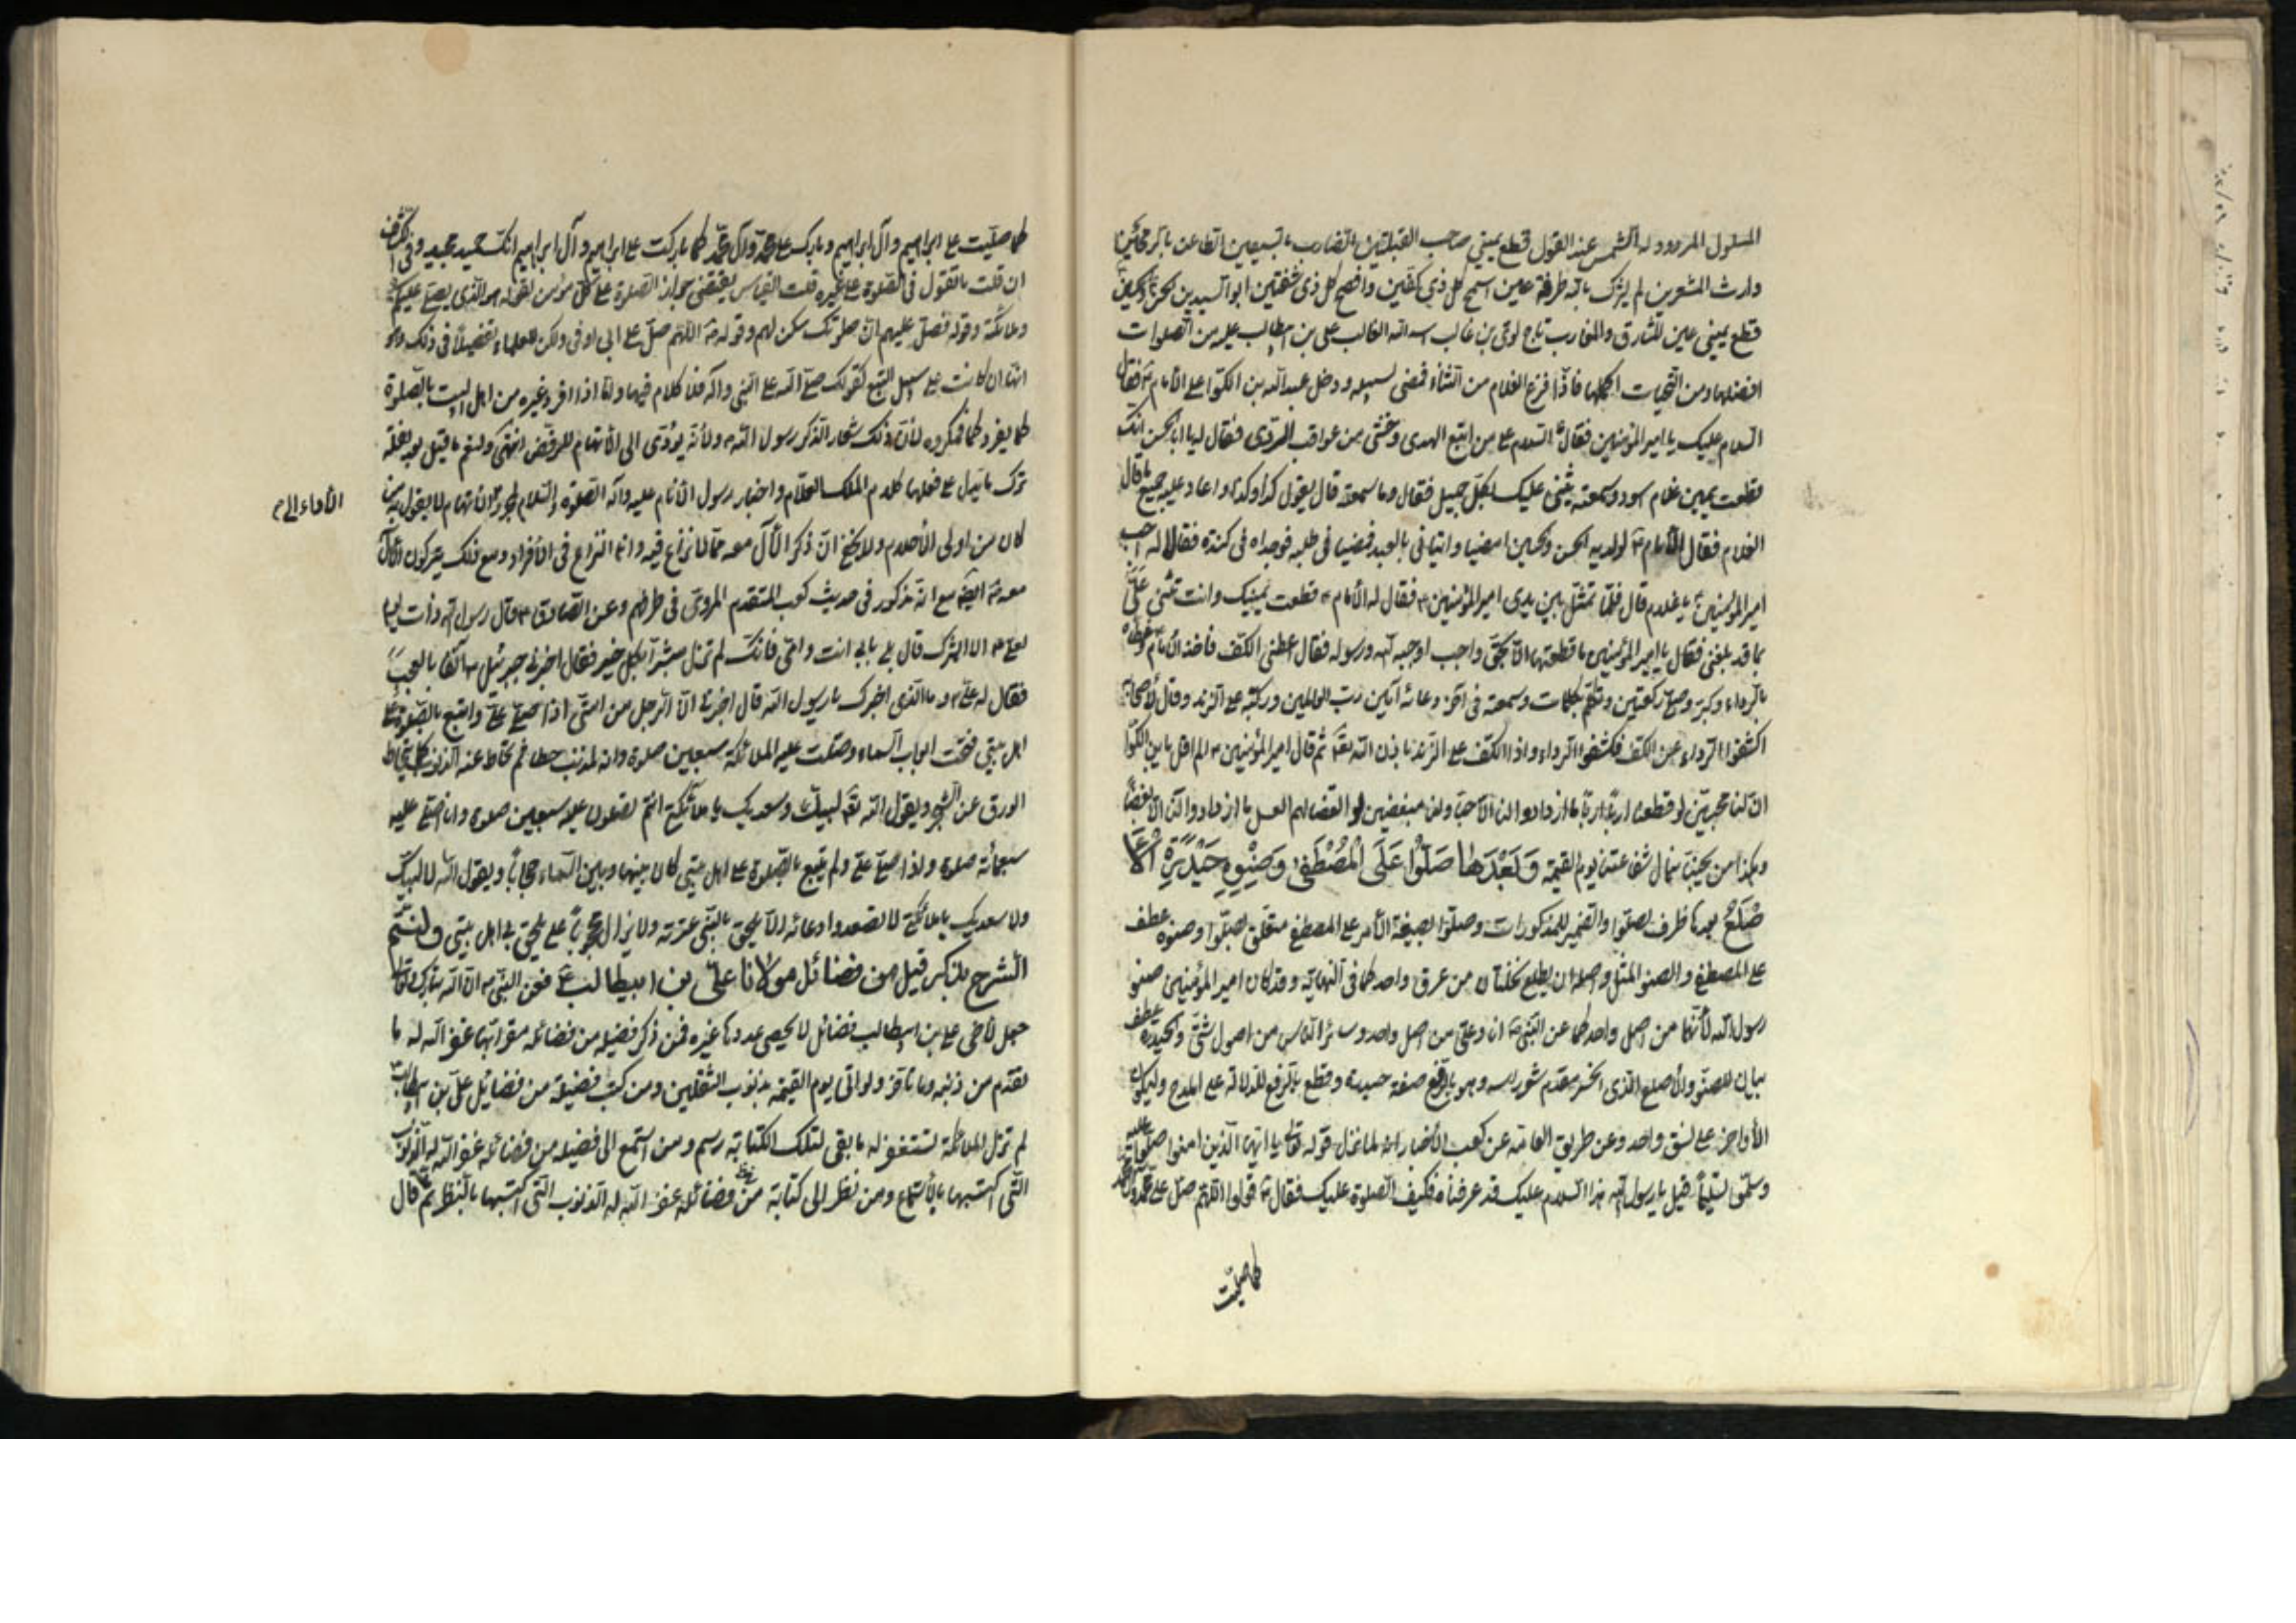 المسلول المردود له الشمس عند القول قطع يميني صاحب القبلتين الضارب بالسيفين الطاعن بالرمحين
وارث المشعرين لم يشرك بالله طرفة عين اسمح كل ذي كفين وافصح كل ذي شفتين ابو السيدين الحسن والحسين
قطع يميني عين المشارق والمغارب تاج لوي بن غالب اسد الله الغالب علي بن ابيطالب عليه من الصلوات
افضلها ومن التحيات اكملها فاذا فرغ الغلام من الثناء فمضى لسبيله ودخل عبد الله بن الكوا على الامام فقال
السلام عليك يا امير المؤمنين فقال السلام على من اتبع الهدى وخشى من عواقب الردى فقال له يا ابا الحسن انك
قطعت يمين غلام اسود وسمعته يثنى عليك بكل جميل فقال وما سمعته قال يقول كذا وكذا واعاد عليه جميع ما قال
الغلام فقال الامام لولديه الحسن والحسين امضيا واتياني بالعبد فمضيا في طلبه فوجداه في كندة فقالا له اجب
امير المؤمنين يا غلام قال فلما تمثل بين يدى امير المؤمنين فقال له الامام قطعت يمينك وانت تثنى على
بما قد بلغنى فقال يا امير المؤمنين ما قطعتها الا بحق واجب اوجبه الله ورسوله فقال اعطنى الكف فاخذ الامام وغطاه
بالرداء وكبر وصلى ركعتين وتكلم بكلمات وسمعته في آخر دعائه آمين رب العالمين وركبه على الزند وقال لاصحابه
اكشفوا الرداء عن الكف فكشفوا الرداء واذا الكف على الزند باذن الله ثم قال امير المؤمنين الم اقل يابن الكوا
ان لنا محبين لو قطعنا اربا اربا ما ازدادوا لنا الا حبا ولنا مبغضين لو العقناهم العسل ما ازدادوا لنا الا بغضا
وهكذا من يحبنا ينال شفاعتنا يوم القيمة وَبَعْدَها صَلُّوا عَلَى الْمُصْطَفى وَصِنْوِهِ حَيْدَرَةِ الْا
صْلَعُ بعدها ظرف لصلوا والضمير للمذكورات وصلوا بصيغة الامر على المصطفى متعلق بصلوا وصنوه عطف
على المصطفى والصنو المثل واصله ان يطلع نخلتان من عرق واحد كما في النهاية وقد كان امير المؤمنين صنو
رسول الله لانهما من اصل واحد كما عن النبي انا وعلي من اصل واحد وسائر الناس من اصول شتى وحيدرة عطف
بيان للصنو والاصلع الذى انحسر مقدم شعر راسه وهو بالرفع صفة حيدرة وقطع بالرفع للدلالة على المدح وليكون
الأواخر على نسق واحد وعن طريق العامة عن كعب الاخبار انه لما نزل قوله يا ايها الذين امنوا صلوا عليه
وسلموا تسليما قيل يا رسول الله هذا السلام عليك قد عرفناه فكيف الصلوة عليك فقال قولوا اللهم صل على محمد وآل محمد
كما صليت
كما صليت على ابراهيم وآل ابراهيم وبارك على محمد وآل محمد كما باركت على ابراهيم وآل ابراهيم انك حميد مجيد وفى الكشاف
ان قلت ما تقول في الصلوة على غيره قلت القياس يقتضى جواز الصلوة على كل مؤمن لقوله هو الذى يصلى عليكم
وملائكته وقوله فصل عليهم ان صلوتك سكن لهم وقوله اللهم صل على ابي اوفى ولكن للعلماء تفصيلا في ذلك وهو
انها ان كانت على سبيل التبع كقولك صلى الله على النبى وآله فلا كلام فيها واما اذا افرد غيره من اهل البيت بالصلوة
كما يفرد كما فمكروه لان ذلك شعار الذكر رسول الله ولانه يؤدى الى الاتهام بالرفض انتهى ولنعم ما قيل
ترك ما يدل على فعلها كلام الملك العلام واخبار رسول الانام عليه وآله الصلوة والسلام لمجرد الاتهام لا يقول به من
الأداء الى
كان من اولى الاحلام ولا يخفى ان ذكر الآل معه مما لا نزاع فيه وانما النزاع في الافراد ومع ذلك يتركون الآل
معه ايضا مع انه مذكور في حديث كعب المتقدم المروى في طرقهم وعن الصادق قال رسول الله ذات يوم
لعلي الا ابشرك قال بلى بابي انت وامى فانك لم تزل مبشرا بكل خير فقال اخبرنى جبرئيل آنفا بالعجب
فقال له علي وما الذى اخبرك يا رسول الله قال اخبرنى ان الرجل من امتى اذا صلى على واتبع بالصلوة على
اهل بيتى فتحت ابواب السماء وصلت عليه الملائكة سبعين صلوة وانه لمذنب خطاء ثم تحات عنه الذنوب كما يتحات
الورق عن الشجر ويقول الله لبيك وسعديك يا ملائكتي انتم تصلون عليه سبعين صلوة وانا اصلى عليه
سبعمائة صلوة واذا صلى على ولم يتبع بالصلوة على اهل بيتى كان بينها وبين السماء حجابا ويقول الله لا لبيك
ولا سعديك يا ملائكتي لا تصعدوا دعائه الا ان يلحق بالنبى عترته ولا يزال محجوبا حتى يلحق بى اهل بيتى ولنختم
الشرح بذكر قيل من فضائل مولانا على بن ابيطالب فعن النبى ان الله تبارك وتعالى
جعل لاخى على بن ابيطالب فضائل لا يحصى عددها غيره فمن ذكر فضيلة من فضائله مقرا بها غفر الله له ما
تقدم من ذنبه وما تاخر ولو اتى يوم القيمة بذنوب الثقلين ومن كتب فضيلة من فضائل على بن ابيطالب
لم تزل الملائكة تستغفر له ما بقى لتلك الكتابة رسم ومن استمع الى فضيلة من فضائله غفر الله له الذنوب
التى اكتسبها بالاستماع ومن نظر الى كتابة من فضائله غفر الله له الذنوب التى اكتسبها بالنظر ثم قال